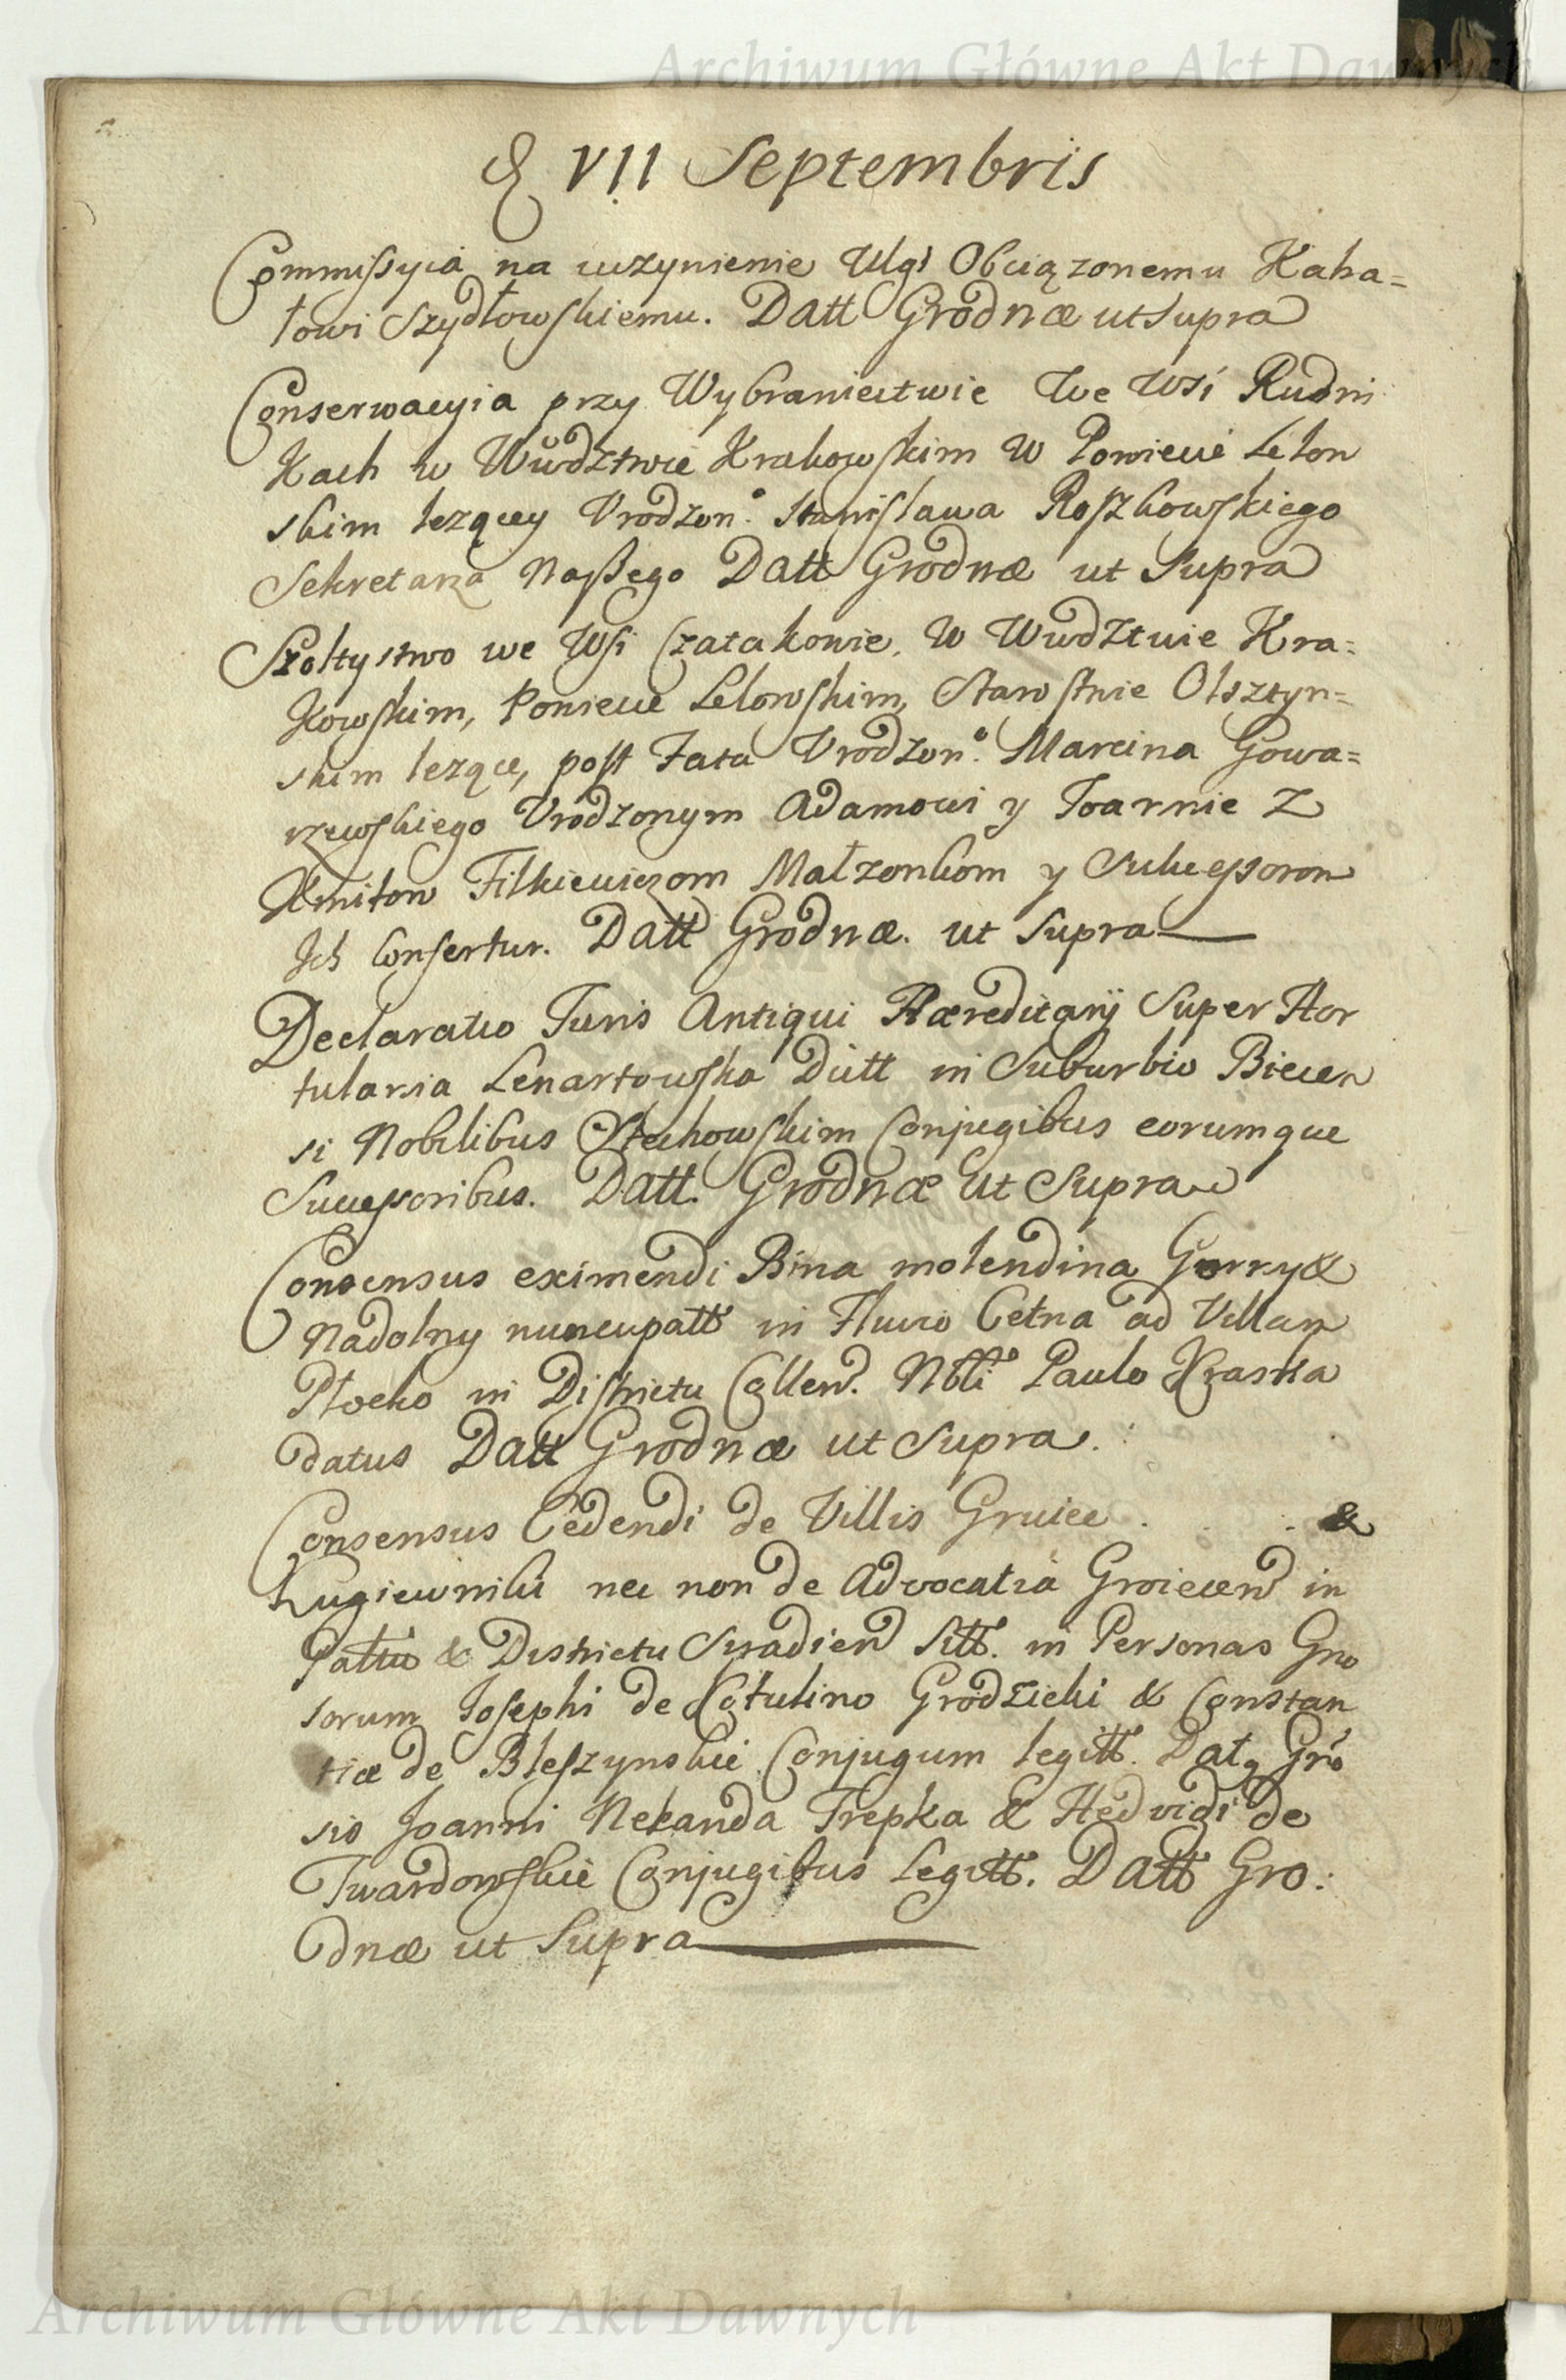 Archiwum Główne Akt Dawnych
& VII Septembris
Commissyia na uczynienie Ulgi Obciązonemu Kaha=
łowi Szydłowskiemu. Datt Grodnæ ut Supra
Conserwacyia przy Wybraniectwie We Wsi Rudni
Kach w Wudztwie Krakowskim W Powiecie Lelow
skim lezącey Vrodzon.° Stanisława Roszkowskiego
Sekretarza Naszego Datt Grodnæ ut Supra
Szołtystwo we Wsi Czatakowie. W Wudztwie Kra=
kowskim, Powiecie Lelowskim, Starostwie Olsztyn=
skim lezące, post Fata Vrodzon.° Marcina Gowa=
rzewskiego Vrodzonym Adamowi y Joannie Z
Kmitow Filkiewiczom Małzonkom y Sukcessorom
Ich Confertur. Datt Grodnæ. ut Supra
Declaratio Juris Antiqui Hæreditarij Super Hor
tulania Lenartowska Dictt in Suburbio Biecen
si Nobilibus Stechowskim Conjugibus eorumque
Successoribus. Datt. Grodnæ ut Supra
Consensus eximendi Bina molendina Gorny &
Nadolny nuncupatt in Fluvio Cetna ad Villam
Ptocko in Districtu Collen. Nbli Paulo Kraska
datus Datt Grodnæ ut Supra.
Consensus Cedendi de Villis Gruice . . . &
Ługiewniki nec non de Advocatia Groiecen in
Pattu & Districtu Siradien Sitt. in Personas Gno
sorum Josephi de Kotulino Grodzicki & Constan
tiæ de Bleszynskie Conjugum legitt. Datq Gno
sis Joanni Nekanda Trepka & Hedvigi de
Twardowskie Conjugibus Legitt. Datt Gro:
dnæ ut Supra
Archiwum Główne Akt Dawnych